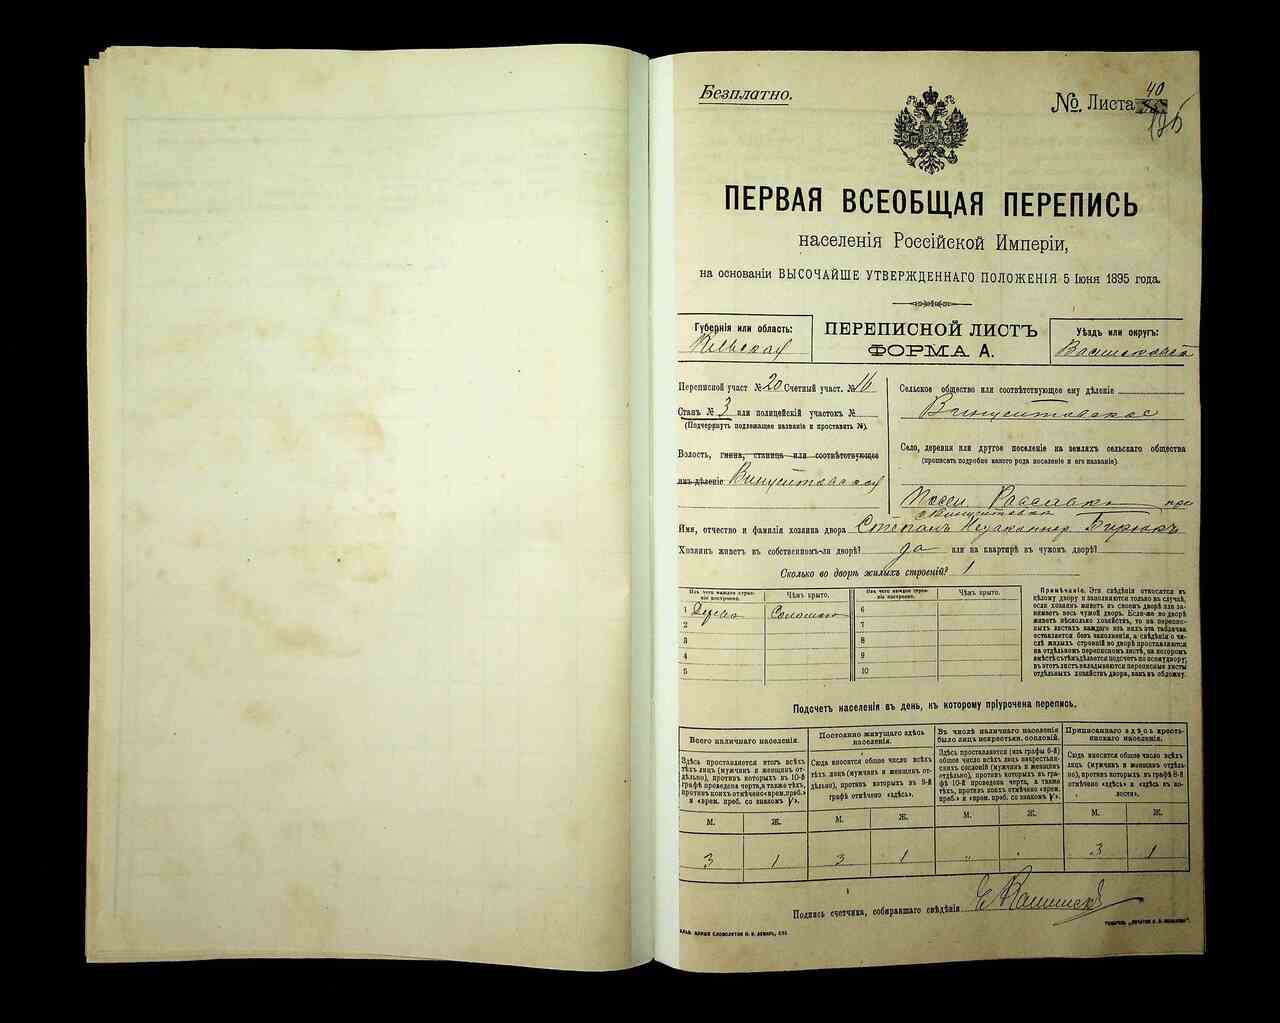 Безплатно.
№. Листа 40
ПЕРВАЯ ВСЕОБЩАЯ ПЕРЕПИСЬ
населенія Россійской Имперіи,
на основаніи ВЫСОЧАЙШЕ УТВЕРЖДЕННАГО ПОЛОЖЕНІЯ 5 Іюня 1895 года.
Губернія или область:
ПЕРЕПИСНОЙ ЛИСТЪ
ФОРМА А.
Уѣздъ или округъ:
Переписной участ № 20 Счетный участ. № 16
Станъ № 3 или полицейскій участокъ №
(Подчеркнуть подлежащее названіе и проставить №).
Волость, гмина, станица или соотвѣтствующее
имъ дѣленіе:
Сельское общество или соотвѣтствующее ему дѣленіе
Село, деревня или другое поселеніе на земляхъ сельскаго общества
(прописать подробно какого рода поселеніе и его названіе)
Имя, отчество и фамилія хозяина двора Степанъ Бирюкъ
Хозяинъ живетъ въ собственномъ-ли дворѣ? да или на квартирѣ въ чужомъ дворѣ?
Сколько во дворѣ жилыхъ строеній? 1
Изъ чего каждое строеніе построено.
Чѣмъ крыто.
Изъ чего каждое строеніе построено.
Чѣмъ крыто.
1 Дерева Соломою 6
2 7
3 8
4 9
5 10
Примѣчаніе. Эти свѣдѣнія относятся къ
цѣлому двору и заполняются только въ случаѣ,
если хозяинъ живетъ въ своемъ дворѣ или за-
нимаетъ весь чужой дворъ. Если-же во дворѣ
живетъ нѣсколько хозяйствъ, то на перепис-
ныхъ листахъ каждаго изъ нихъ эта табличка
оставляется безъ заполненія, а свѣдѣнія о чи-
слѣ жилыхъ строеній во дворѣ проставляются
на отдѣльномъ переписномъ листѣ, на которомъ
вмѣстѣ съ тѣмъ дѣлается подсчетъ по всему двору;
въ этотъ листъ вкладываются переписные листы
отдѣльныхъ хозяйствъ двора, какъ въ обложку.
Подсчетъ населенія въ день, къ которому пріурочена перепись.
Всего наличнаго населенія.
Здѣсь проставляется итогъ всѣхъ
тѣхъ лицъ (мужчинъ и женщинъ от-
дѣльно), противъ которыхъ въ 10-й
графѣ проведена черта, а также тѣхъ,
противъ коихъ отмѣчено «врем. преб.»
и «врем. преб. со знакомъ V».
Постоянно живущаго здѣсь
населенія.
Сюда вносится общее число всѣхъ
тѣхъ лицъ (мужчинъ и женщинъ от-
дѣльно), противъ которыхъ въ 9-й
графѣ отмѣчено «здѣсь».
Въ числѣ наличнаго населенія
было лицъ некрестьян. сословій.
Здѣсь проставляются (изъ графы 6-й)
общее число всѣхъ лицъ некрестьян-
скихъ сословій (мужчинъ и женщинъ
отдѣльно), противъ которыхъ въ гра-
фѣ 10-й проведена черта, а также
тѣхъ, противъ коихъ отмѣчено «врем.
преб.» и «врем. преб. со знакомъ V».
Приписаннаго здѣсь кресть-
янскаго населенія.
Сюда вносится общее число всѣхъ
лицъ (мужчинъ и женщинъ отдѣль-
но), противъ которыхъ въ графѣ 8-й
отмѣчено «здѣсь» и «здѣсь въ во-
лости».
М. Ж. М. Ж. М. Ж. М. Ж.
3 1 3 1 " " 3 1
Подпись счетчика, собиравшаго свѣдѣнія